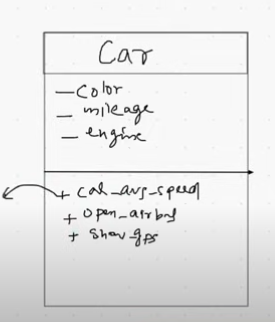 Car
- Color
- mileage
- engine
+ cal_avg_speed
+ open_airbag
+ show_gps